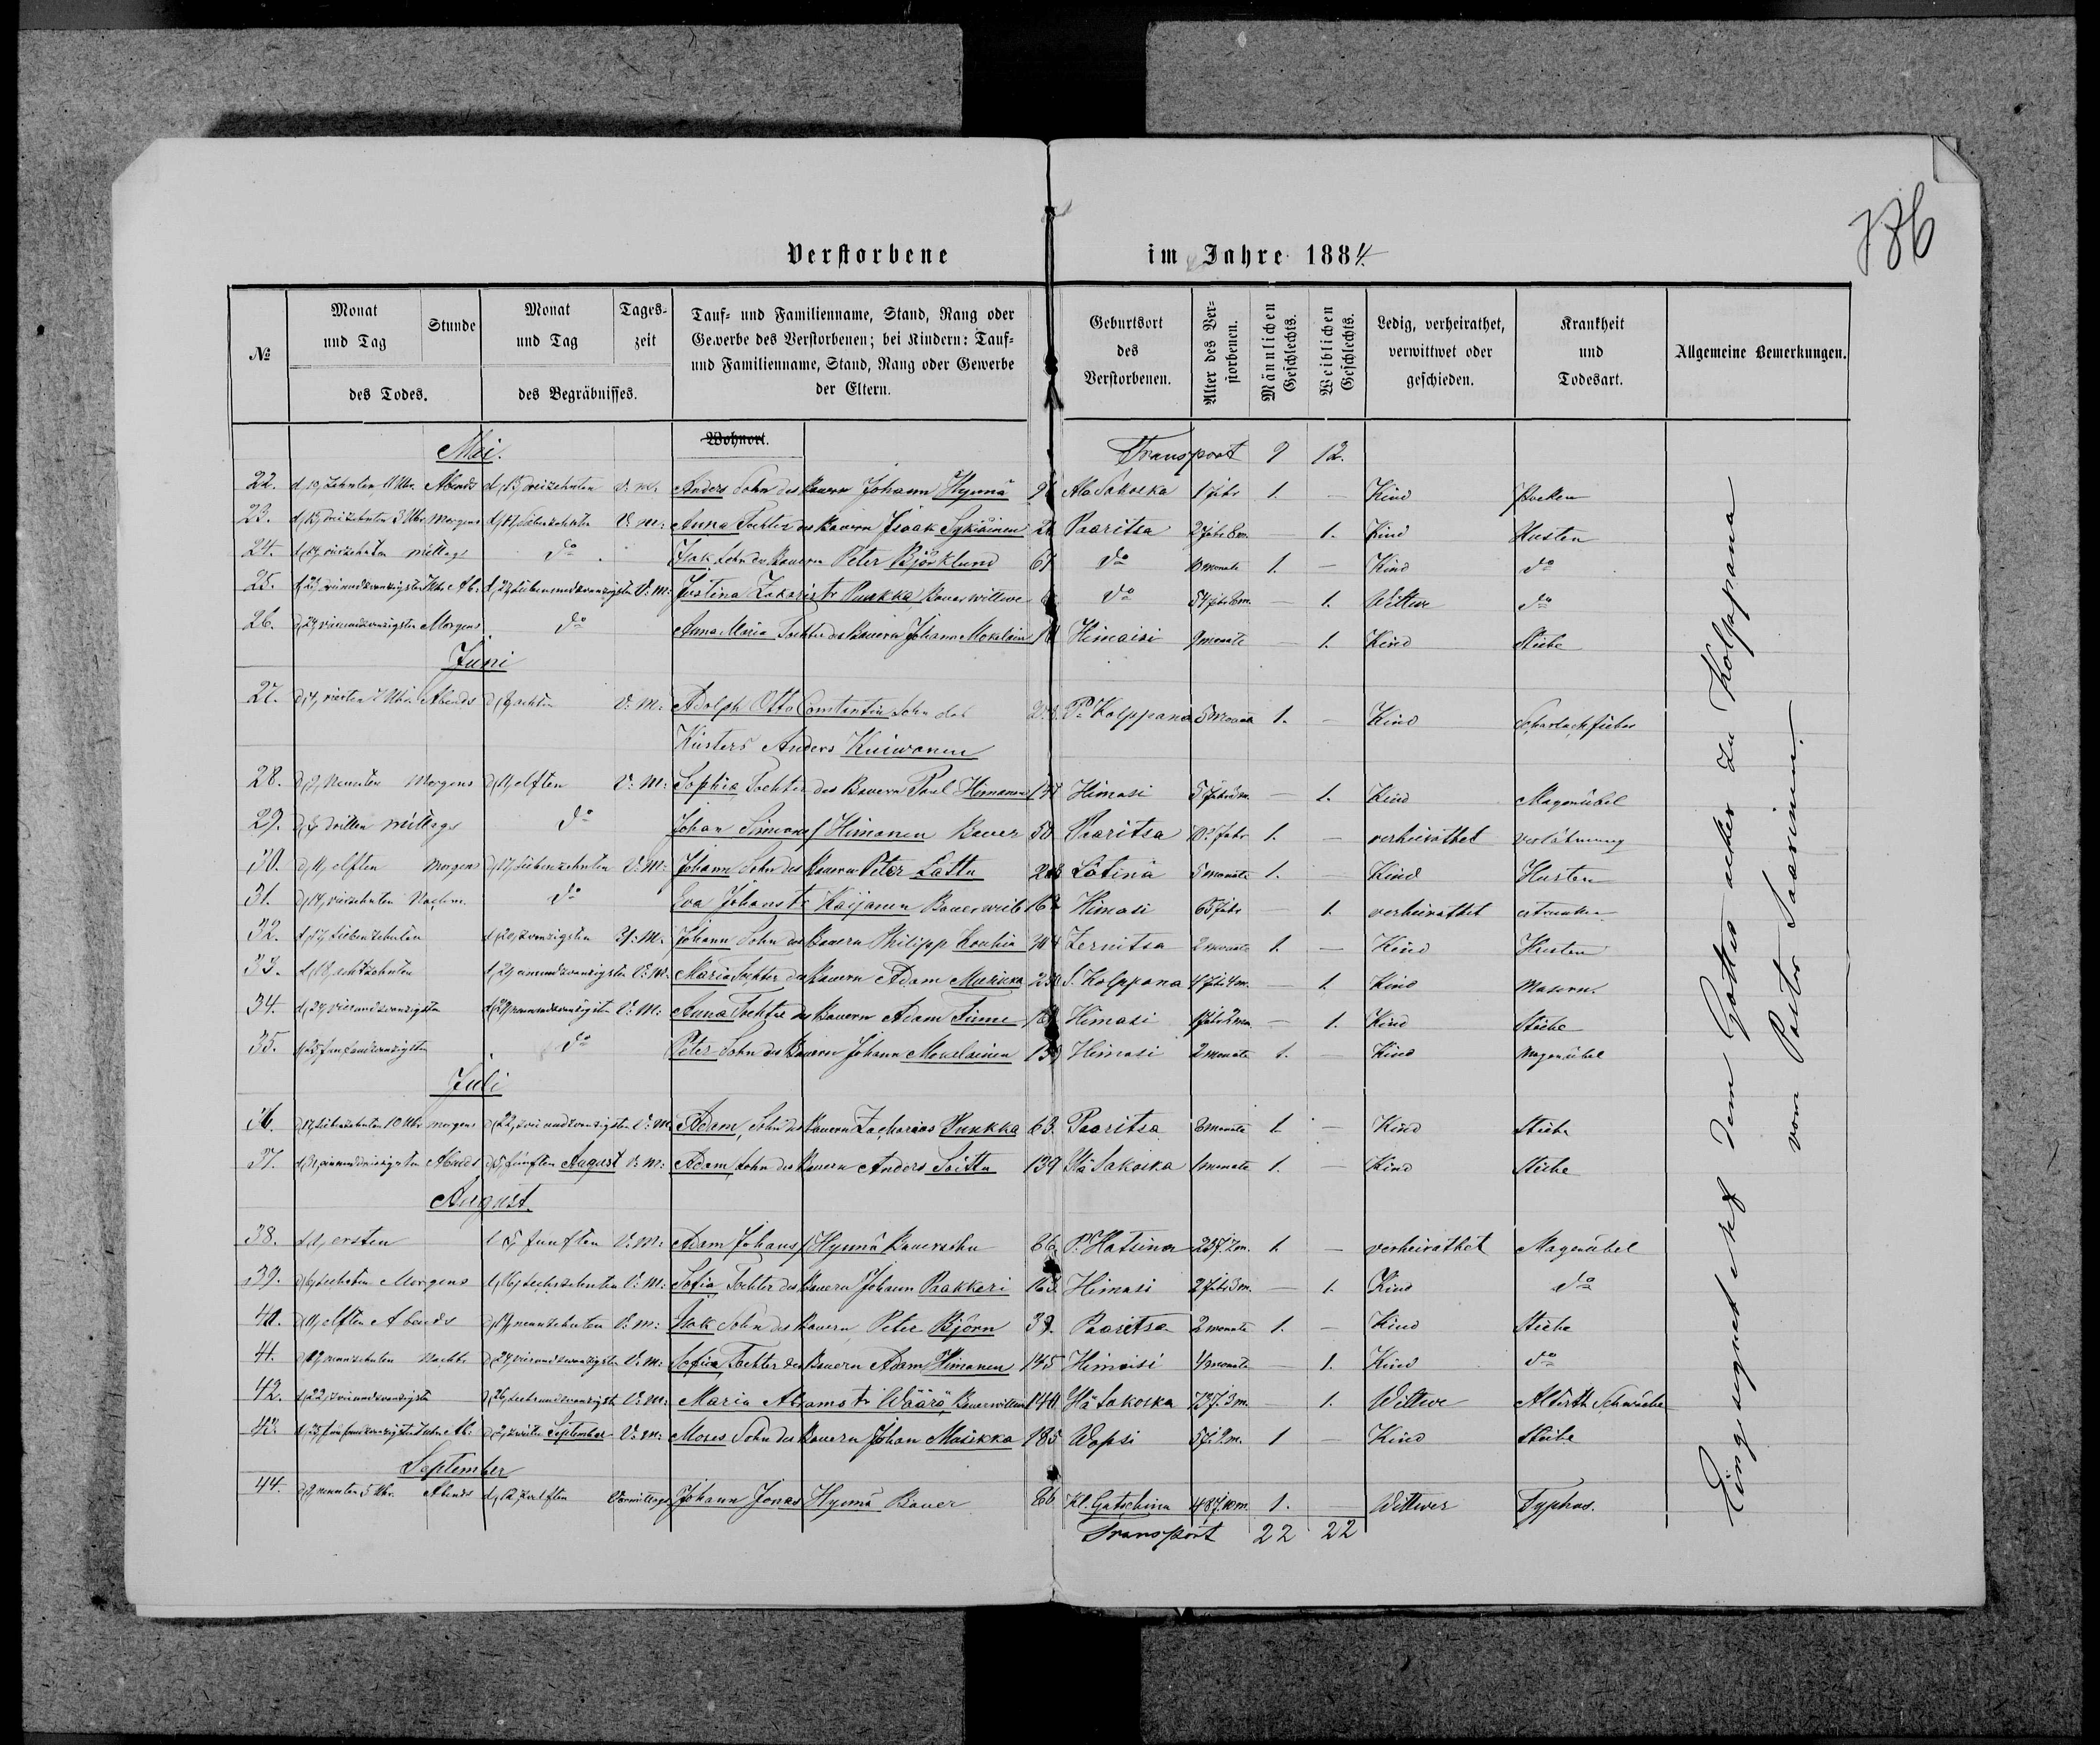 786
Verstorbene im Jahre 1884.
№ Monat und Tag Stunde des Todes. Monat und Tag Tageszeit des Begräbnisses. Tauf- und Familienname, Stand, Rang oder Gewerbe des Verstorbenen; bei Kindern: Tauf- und Familienname, Stand, Rang oder Gewerbe der Eltern. Geburtsort des Verstorbenen. Alter des Verstorbenen. Männlichen Geschlechts. Weiblichen Geschlechts. Ledig, verheirathet, verwittwet oder geschieden. Krankheit und Todesart. Allgemeine Bemerkungen.
Wohnort.
Mai. Transport 9 12.
22. d. 10, Zehnten, 11 Uhr. Abends d. 13, dreizehnten V. M. Anders Sohn des Bauern Johann Hynnä Ala Sakoska 1 Jahr 1. — Kind Pocken
23. d. 13, dreizehnten 3 Uhr Morgens d. 17, siebzehnten V. M: Anna Tochter des Bauern Isaak Sykiäinen Paaritsa 2 Jahr 8 m. — 1. Kind Husten
24. d. 14, vierzehnten mittags do Isak Sohn des Bauern Peter Björklund 67 do 10 monate 1. — Kind do
25. Ab: d. 27, siebenundzwanzigsten V: M: Justina Zakaris tr Pukka Bauerwittwe do 54 Jahr 8 m. — 1. Wittwe do
26. d. 24, vierundzwanzigsten Morgens do Anna Maria Tochter des Bauern Johann Mokelain Himaisi 9 monate — 1. Kind Stiche
Juni
27. d. 4, vierten 7 Uhr. Abends d. 8, achten V: M: Adolph Otto Constantin Sohn des P. Kolppana 5 monate 1. — Kind Scharlachfieber
Küsters Anders Kuiwanen
28. d. 9, Neunten Morgens d. 11, elften V: M: Sophia, Tochter des Bauern Paul Himanen 147 Himasi 5 Jahr 3 m. — 1. Kind Magenübel
29. d. 3, dritten mittags do Johan Simons f Himanen Bauer 50 Paaritsa 1. — verheirathet verlähmung
30. d. 11, elften Morgens d. 17, siebenzehnten V: M: Johann Sohn des Bauern Peter Lättu 208 Lätinä 5 monate 1. Kind Husten
31. d. 14, vierzehnten Nachm. do Eva Johans tr Kaijanen Bauerweib 162 Himasi 65 Jahr — 1. verheirathet ertrunken
32. d. 17, siebenzehnten d. 20, zwanzigsten V: M: Johann Sohn des Bauern Philipp Loukia 204 Zernitsa 2 monate 1. — Kind Husten
33. d. 18, achtzehnten d. 21, einundzwanzigsten V: M. Maria Tochter des Bauern Adam Musikka 239 S. Kolppana 4 Jahr 4 m. — 1 Kind Masern.
34. d. 24, vierundzwanzigsten d. 29, neunundzwanzigst V: M: Anna Tochter des Bauern Adam Tiime Himasi 1 Jahr 2 mon. — 1. Kind Stiche
35. d. 25, fünfundzwanzigsten do Peter Sohn des Bauern Johann Mokelainen 159 Himasi 2 monate 1. — Kind Magenübel
Juli
36. d. 17, siebenzehnten 10 Uhr morgens d. 22, zweiundzwanzigsten V: M Adam, Sohn des Bauern Zacharias Pukkka 63. Paaritsa 8 monate 1. — Kind Stiche
37. d. 31, einunddreissigsten Abends d. 5, fünften August V: M: Adam Sohn des Bauern Anders Soittu 139 Ylä Sakoska 1 monate 1. — Kind Stiche
August.
38. d. 1, ersten d. 5, fünften V: M: Adam Johans f Hynnä Bauersohn 86. P. Hatsina 25 J. 7 m. 1. — verheirathet Magenübel
39. d. 6, sechsten Morgens d. 16, sechszehnten V: M: Sofia Tochter des Bauern Johann Paakkeri 163. Himasi 2 Jahr 3 m. — 1. Kind do
40. d. 11, elften Abends d. 19, neunzehnten V: M: Isak Sohn des Bauern Peter Björn 39. Paaritsa 2 monate 1. — Kind Stiche
41. d. 19, neunzehnten Nachts d. 24, vierundzwanzigsten V: M: Sofia Tochter des Bauern Adam Himanen 145 Himaisi 4 monate — 1. Kind do
42. d. 22, zweiundzwanzigsten d. 26, sechsundzwanzigst V: M: Maria Abrams tr Wäärä Bauerwittwe 140 Ylä Sakoska 73 J. 3 m. — 1. Wittwe Alterth. Schwäche
43. Ab: d. 2, zweiten September V: M: Moses Sohn des Bauern Johan Musikka 185 Wopsi 5 J. 9 m. 1 — Kind Stiche
September
44. d. 9, neunten 5 Uhr. Abends d. 12, zwölften Vormittags Johann Jonas Hynnä Bauer 86 Kl. Gatschina 48 J. 10 m. 1. Wittwer Typhus.
Transport 22 22
Eingesegnet auf dem Gottes acker zu Kolppana
vom Pastor Saarinen.